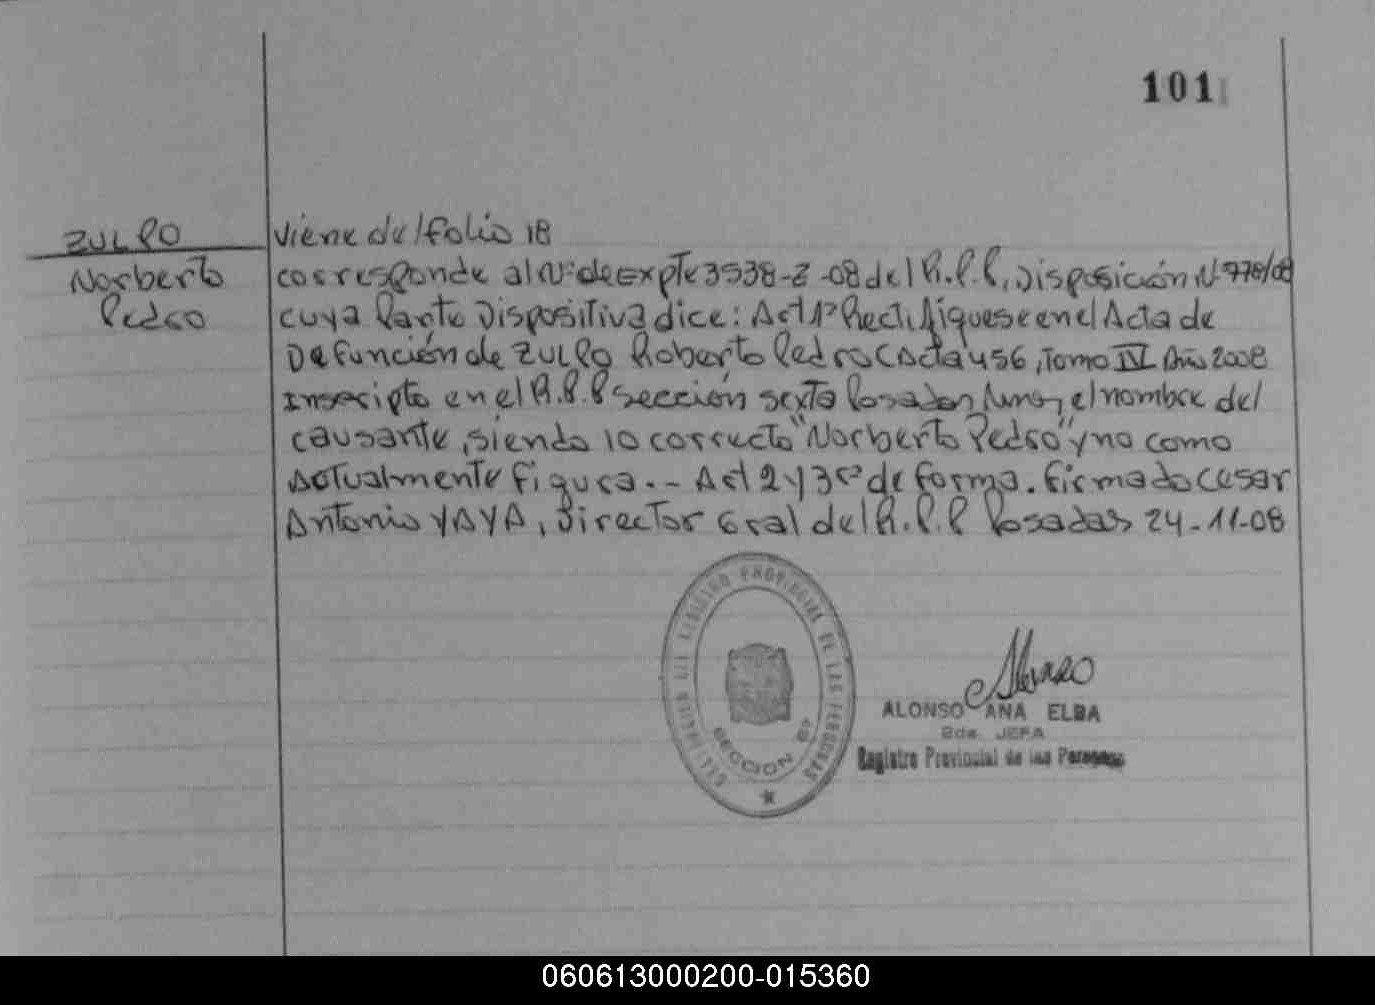 101
ZULPO
Norberto
Pedro
Viene del folio 18
corresponde al Nº de Expte 3538-Z-08 del R.P.P, Disposición Nº 778/08
cuya Parte Dispositiva dice: Art 1º Rectifiquese en el Acta de
Defunción de ZULPO Roberto Pedro (Acta 456, Tomo IV Año 2008
Inscripto en el R.P.P sección sexta Posadas, el nombre del
causante, siendo lo correcto "Norberto Pedro" y no como
Actualmente Figura.-- Art 2 y 3º de forma. Firmado Cesar
Antonio YAYA, Director Gral del R.P.P Posadas 24-11-08
REGISTRO PROVINCIAL DE LAS PERSONAS
SECCION 6ª
ALONSO ANA ELBA
2da. JEFA
Registro Provincial de las Personas
060613000200-015360